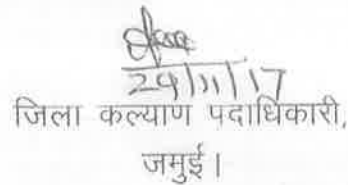 29/11/17
जिला कल्याण पदाधिकारी,
जमुई।